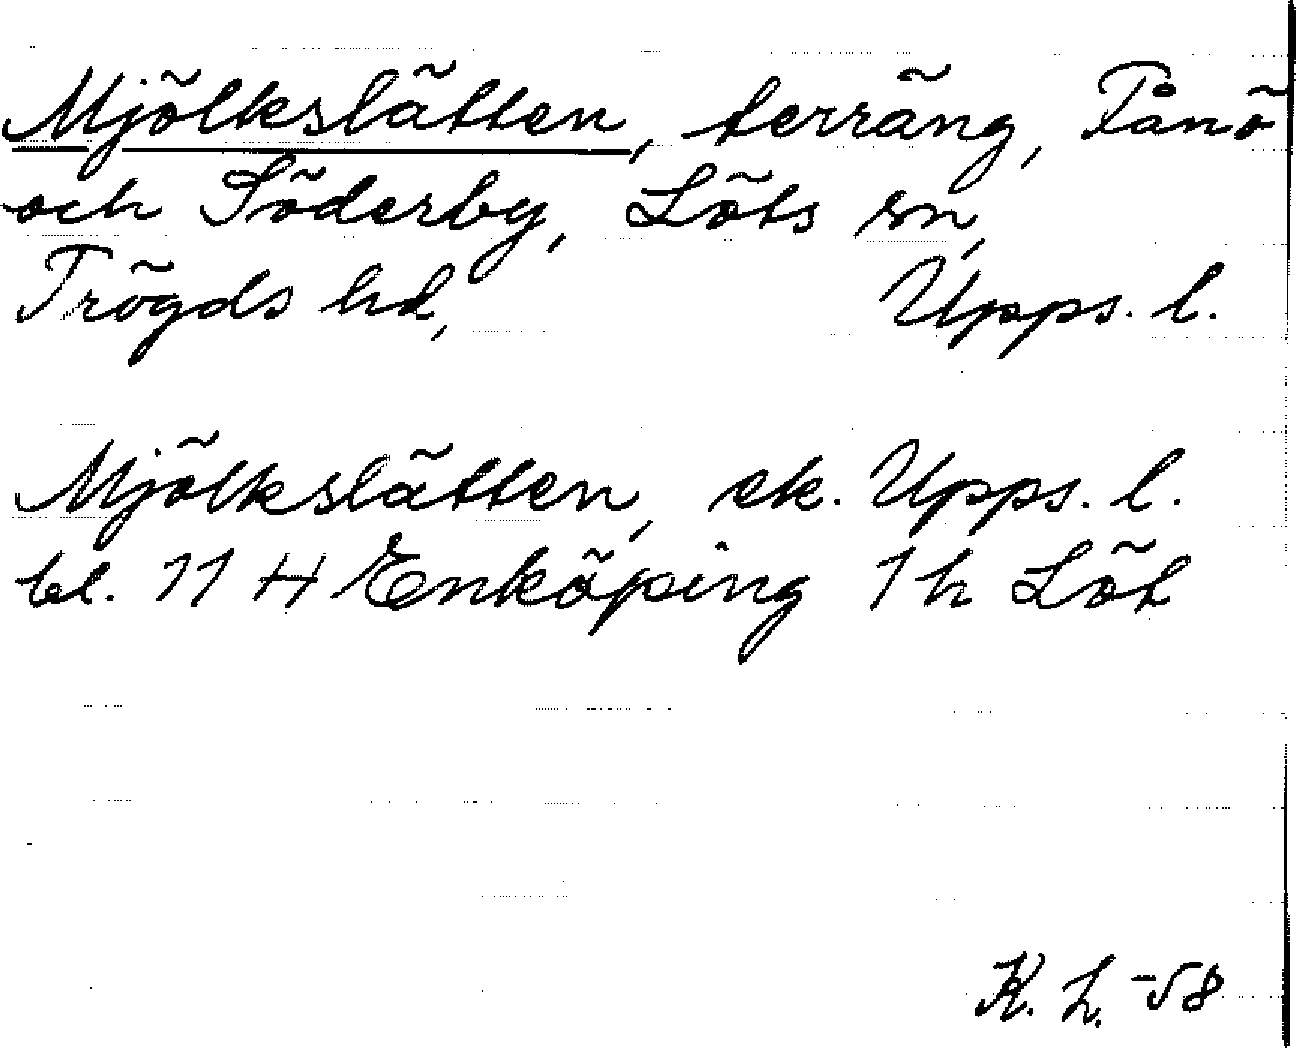 Mjölkslätten, terräng, Fånö
och Söderby, Löts sn,
Trögds hd, Upps. l.
Mjölkslätten, ek. Upps. l.
bl. 11 H Enköping 1 h Löt
K. L. -58